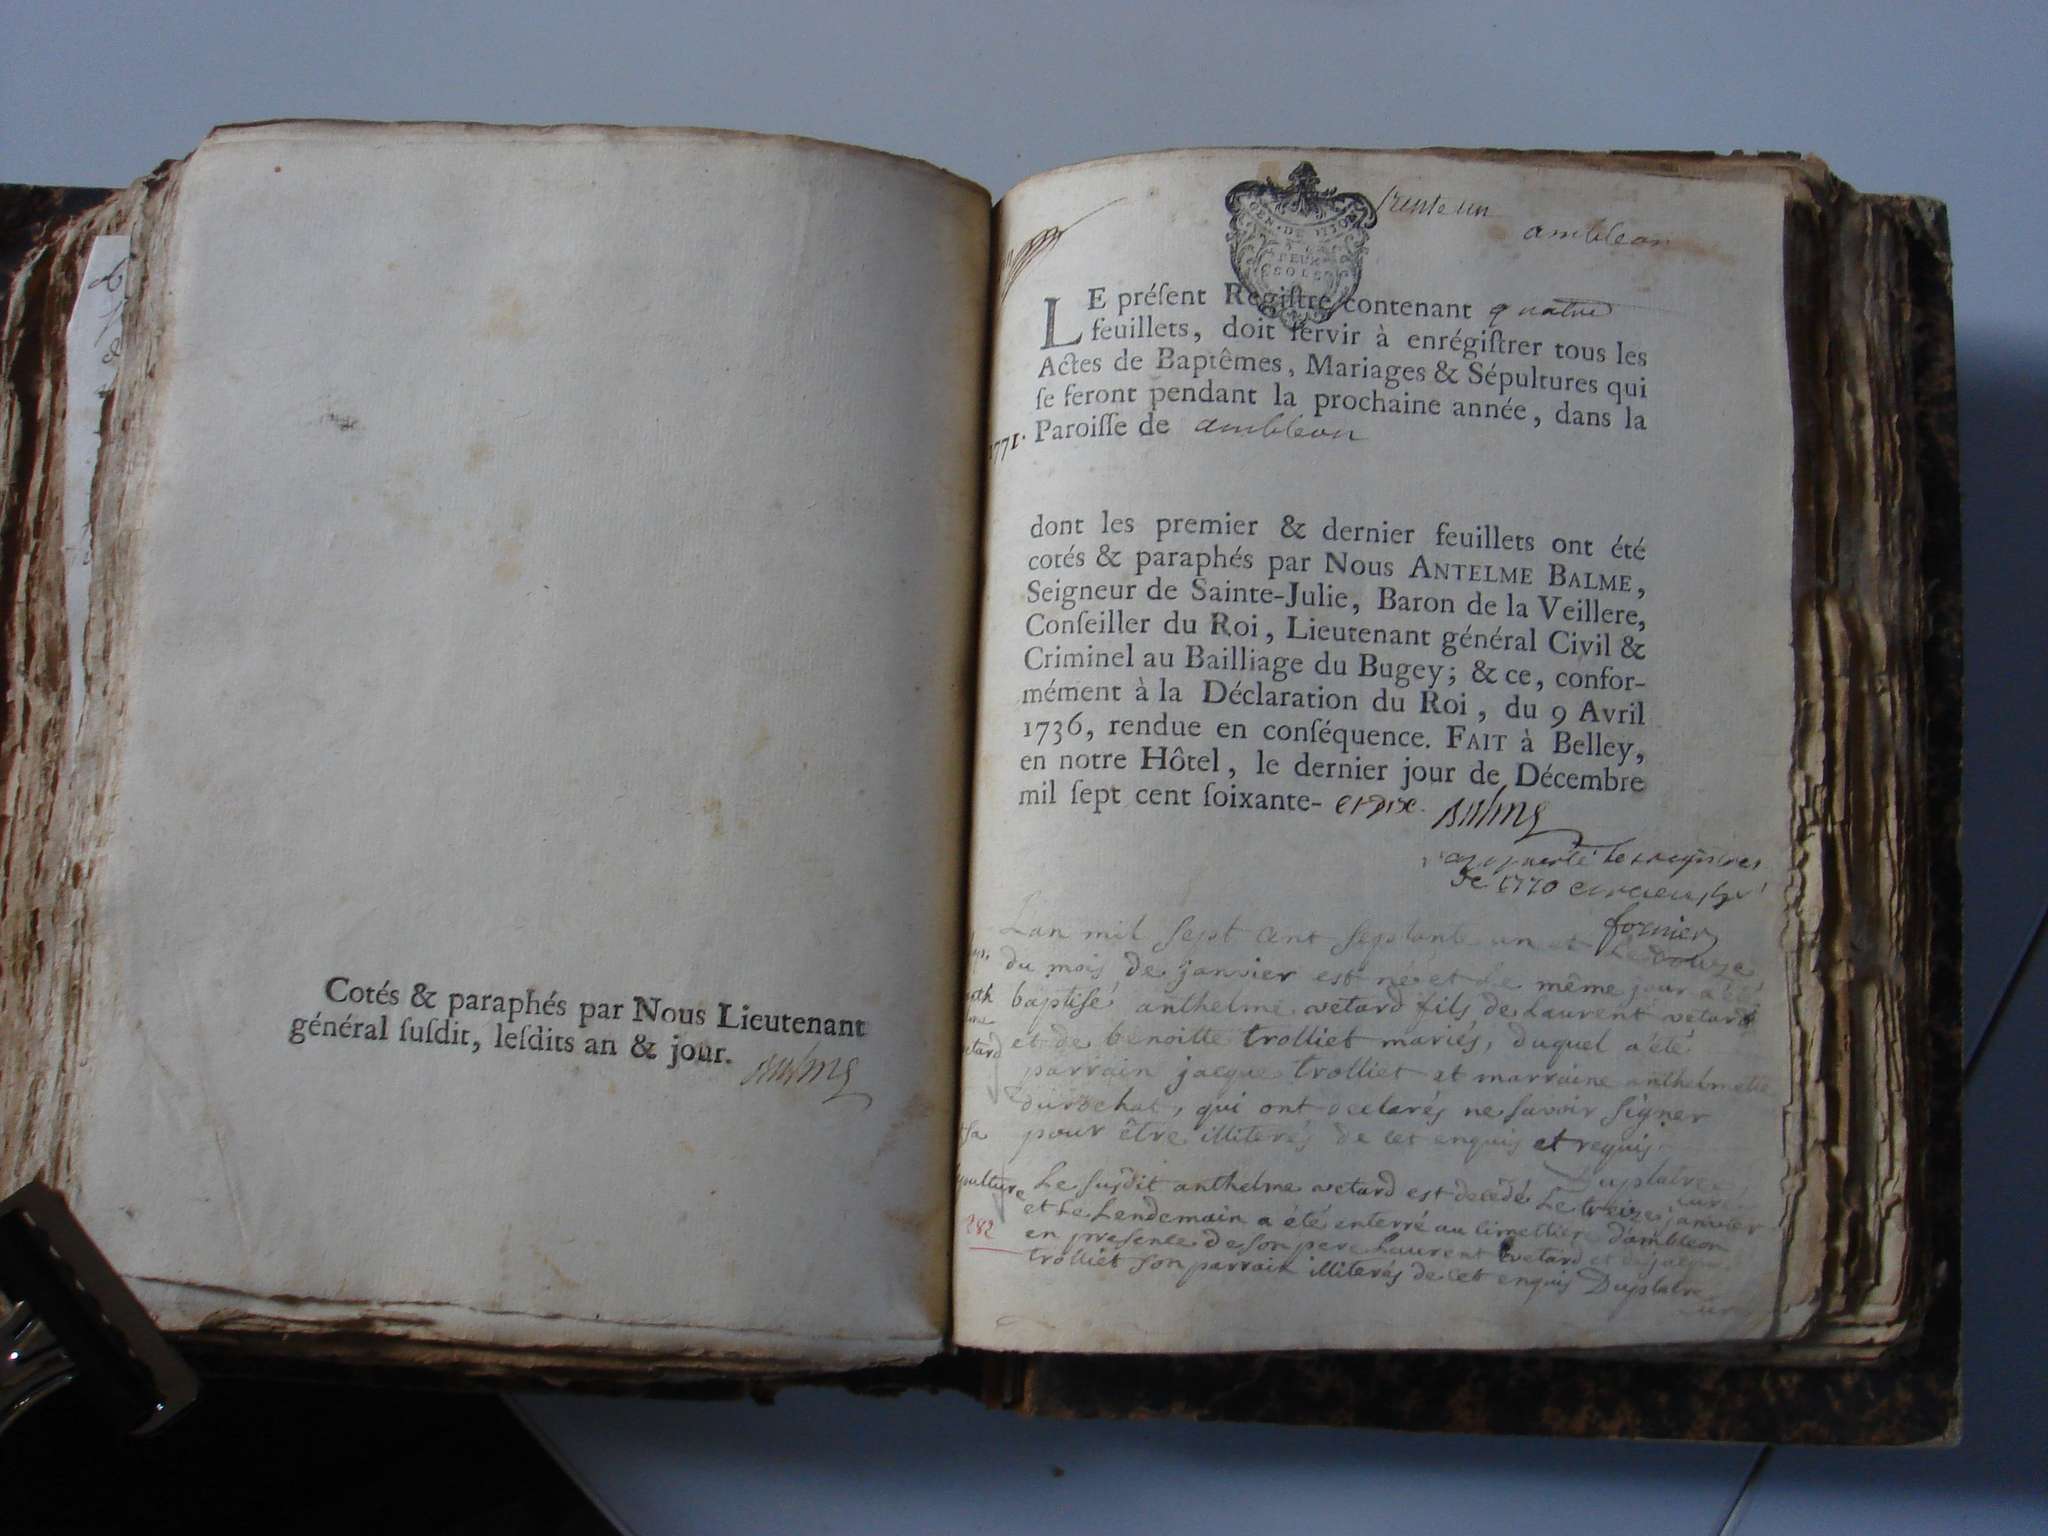 Cotés & paraphés par Nous Lieutenant
général ſuſdit, leſdits an & jour.
Balme
GEN. DE
DEUX
SOLS
trente un
ambleon
LE préſent Regiſtre contenant quatre
feuillets, doit ſervir à enrégiſtrer tous les
Actes de Baptêmes, Mariages & Sépultures qui
ſe feront pendant la prochaine année, dans la
1771. Paroiſſe de ambleon
dont les premier & dernier feuillets ont été
cotés & paraphés par Nous ANTELME BALME,
Seigneur de Sainte-Julie, Baron de la Veillere,
Conſeiller du Roi, Lieutenant général Civil &
Criminel au Bailliage du Bugey; & ce, confor-
mément à la Déclaration du Roi, du 9 Avril
1736, rendue en conſéquence. FAIT à Belley,
en notre Hôtel, le dernier jour de Décembre
mil ſept cent ſoixante- et dix. Balme
apporté les registres
de 1770
fornier
Lan mil sept cent septante un et le douze
du mois de janvier est né et le même jour a été
baptisé anthelme vetard fils de Laurent vetard
et de benoitte trolliet mariés, duquel a été
parrain jacque trolliet et marraine anthelmette
durochat, qui ont declarés ne savoir signer
pour être illiterés de cet enquis et requis.
Duplatre
curé
sepulture
Le susdit anthelme vetard est decédé le treize janvier
et le Lendemain a été enterré au cimettiere d'ambleon
en presence de son pere Laurent vetard et de jacque
trolliet son parrain illiterés de cet enquis Duplatre
curé
282